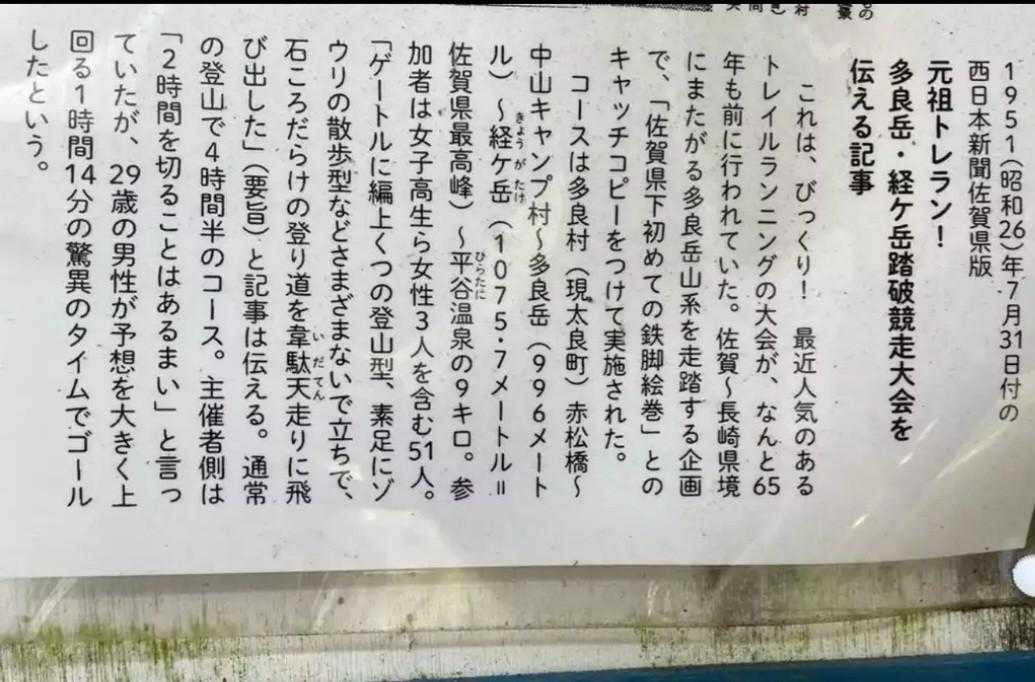 1951(昭和26)年7月31日付の
西日本新聞佐賀県版
元祖トレラン!
多良岳・経ケ岳踏破競走大会を
伝える記事
これは、びっくり! 最近人気のある
トレイルランニングの大会が、なんと65
年も前に行われていた。佐賀〜長崎県境
にまたがる多良岳山系を走踏する企画
で、「佐賀県下初めての鉄脚絵巻」との
キャッチコピーをつけて実施された。
コースは多良村(現太良町)赤松橋〜
中山キャンプ村〜多良岳(996メート
ル)〜経ケ岳(1075・7メートル=
きょうがたけ
佐賀県最高峰)〜平谷温泉の9キロ。参
ひらたに
加者は女子高生ら女性3人を含む51人。
「ゲートルに編上くつの登山型、素足にゾ
ウリの散歩型などさまざまないで立ちで、
石ころだらけの登り道を韋駄天走りに飛
いだてん
び出した」(要旨)と記事は伝える。通常
の登山で4時間半のコース。主催者側は
「2時間を切ることはあるまい」と言っ
ていたが、29歳の男性が予想を大きく上
回る1時間14分の驚異のタイムでゴール
したという。